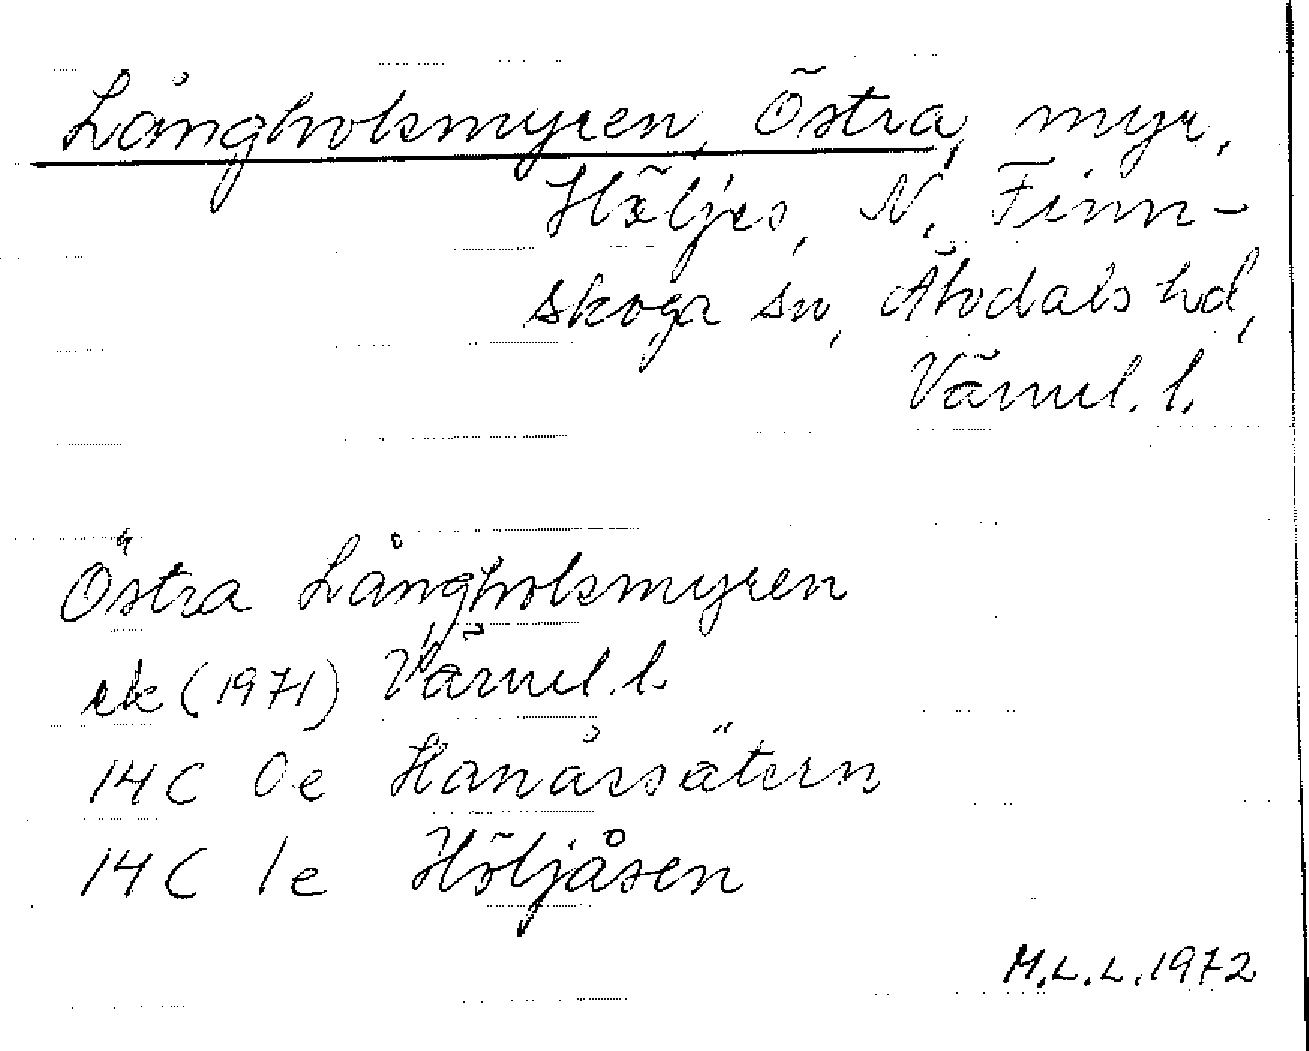 Långholsmyren, Östra, myr,
Höljes, N. Finn-
skoga sn, Älvdals hd,
Värml. l.
Östra Långholsmyren
ek (1971) Värml. l.
14 C 0e Hanåssätern
14 C 1e Höljåsen
M.L.L. 1972